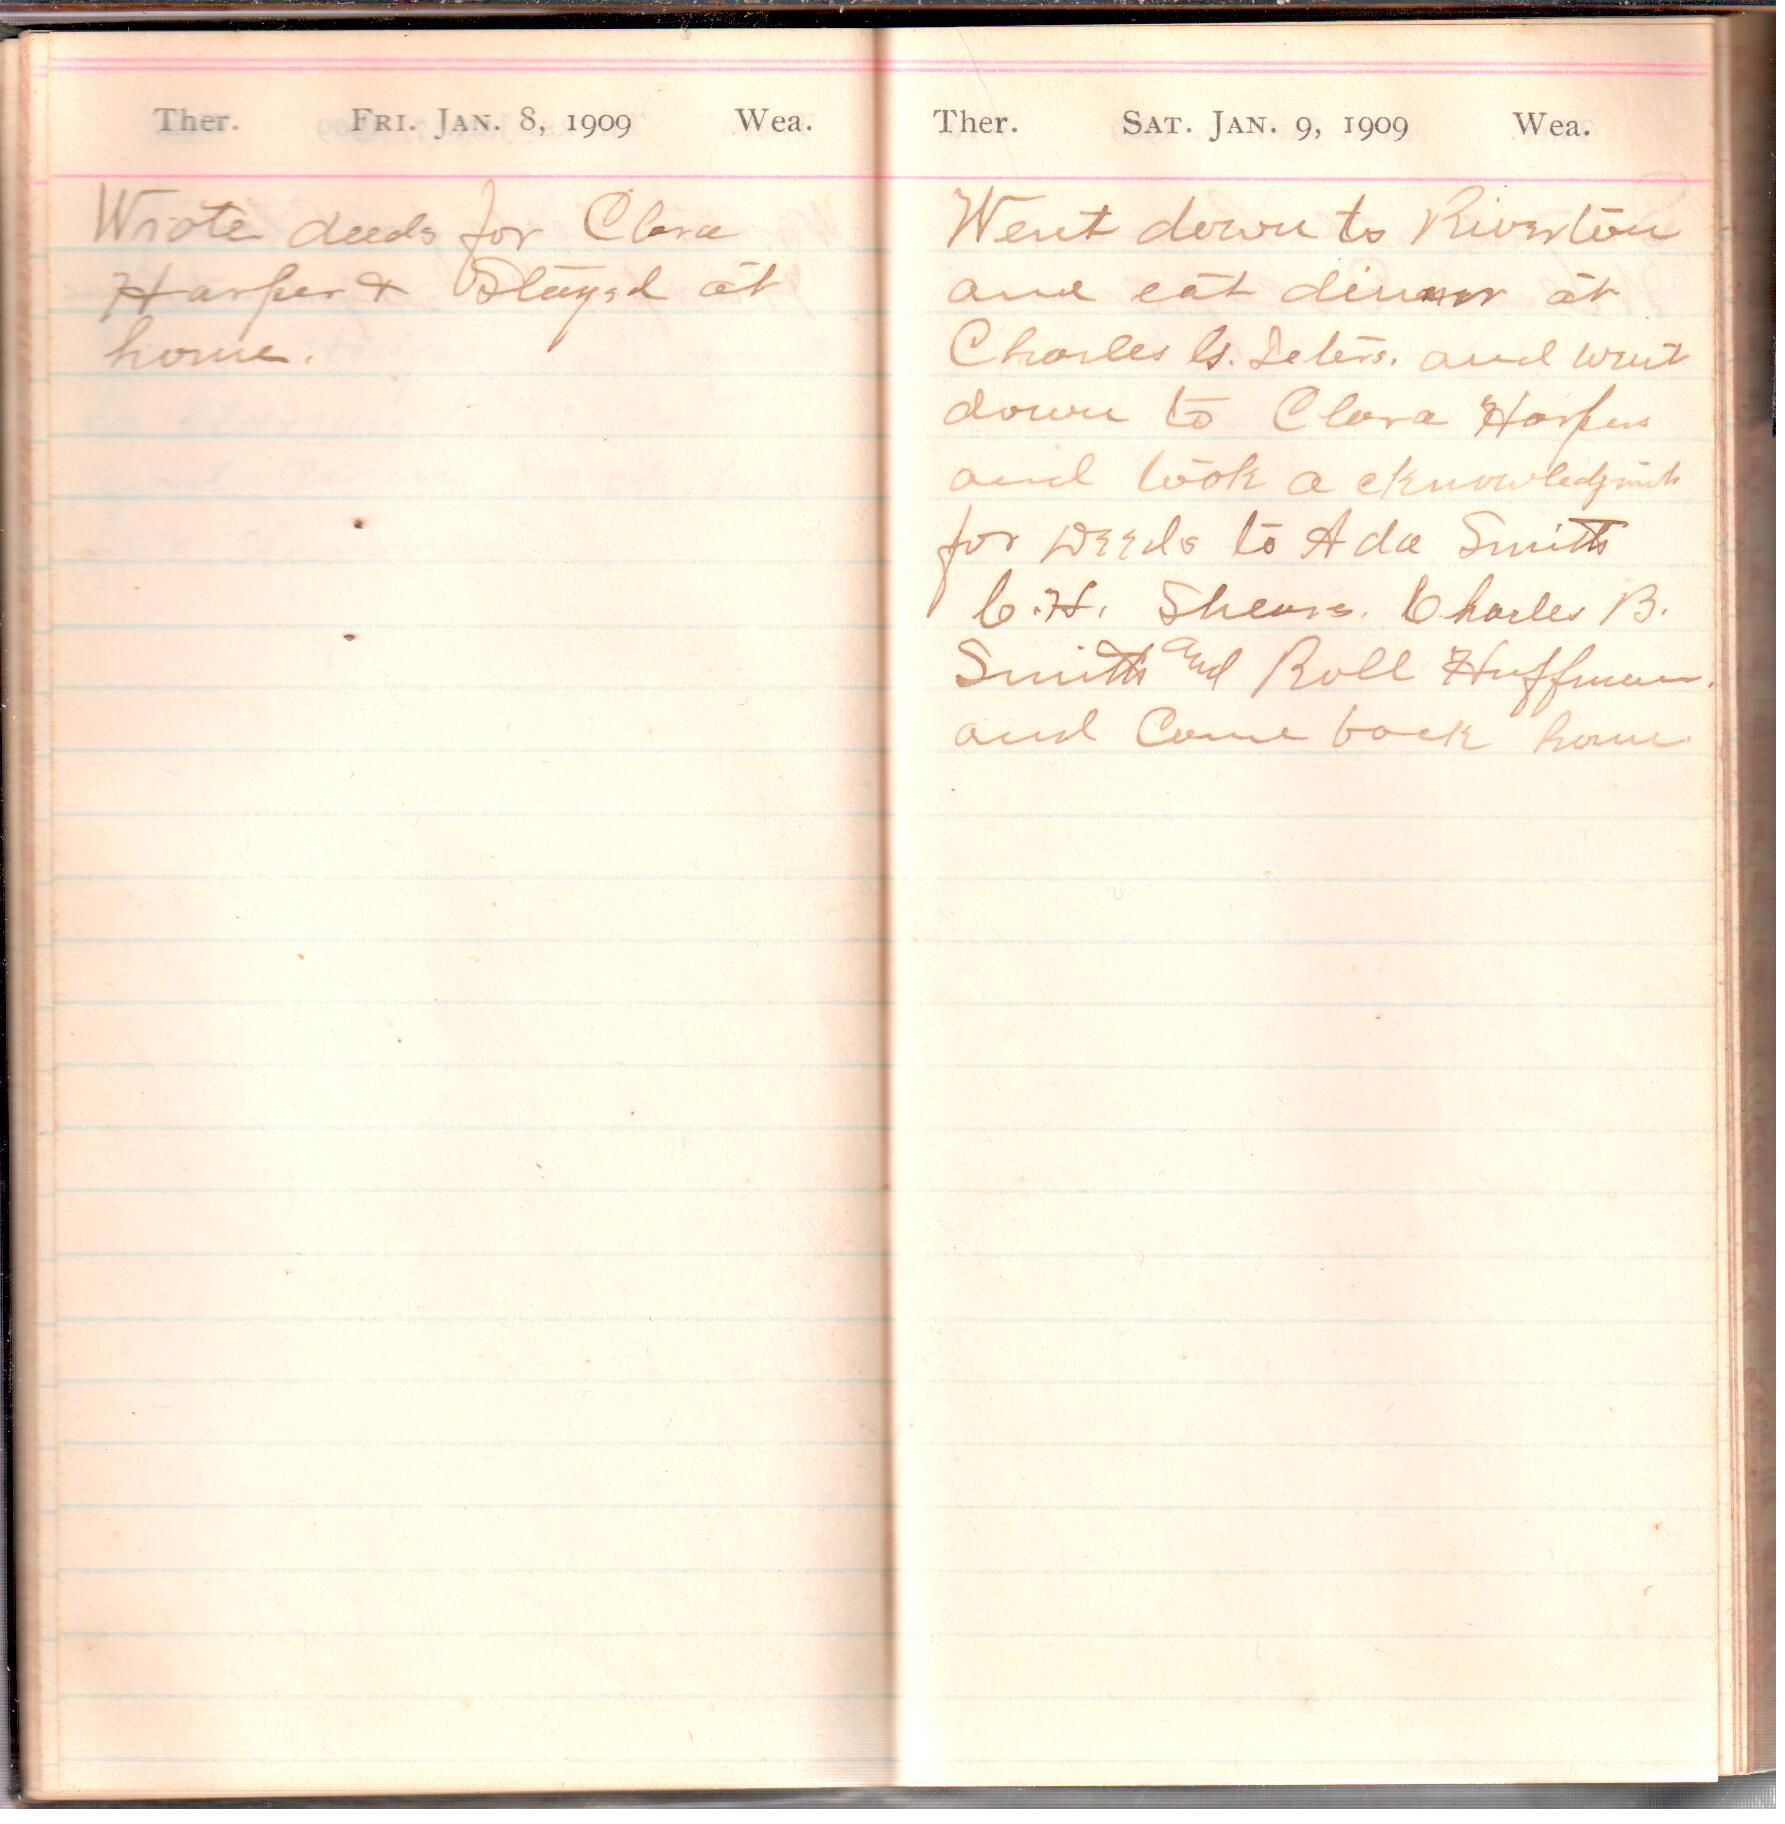 Ther. FRI. JAN. 8, 1909 Wea.
Wrote deeds for Clara
Harper & Stayed at
home.
Ther. SAT. JAN. 9, 1909 Wea.
Went down to Riverton
and eat dinner at
Charles and went
down to Clara Harpers
and took acknowledgments
for Deeds to Ada Smith
C. H. Shears. Charles B.
Smith and Roll Huffman.
and Came back home